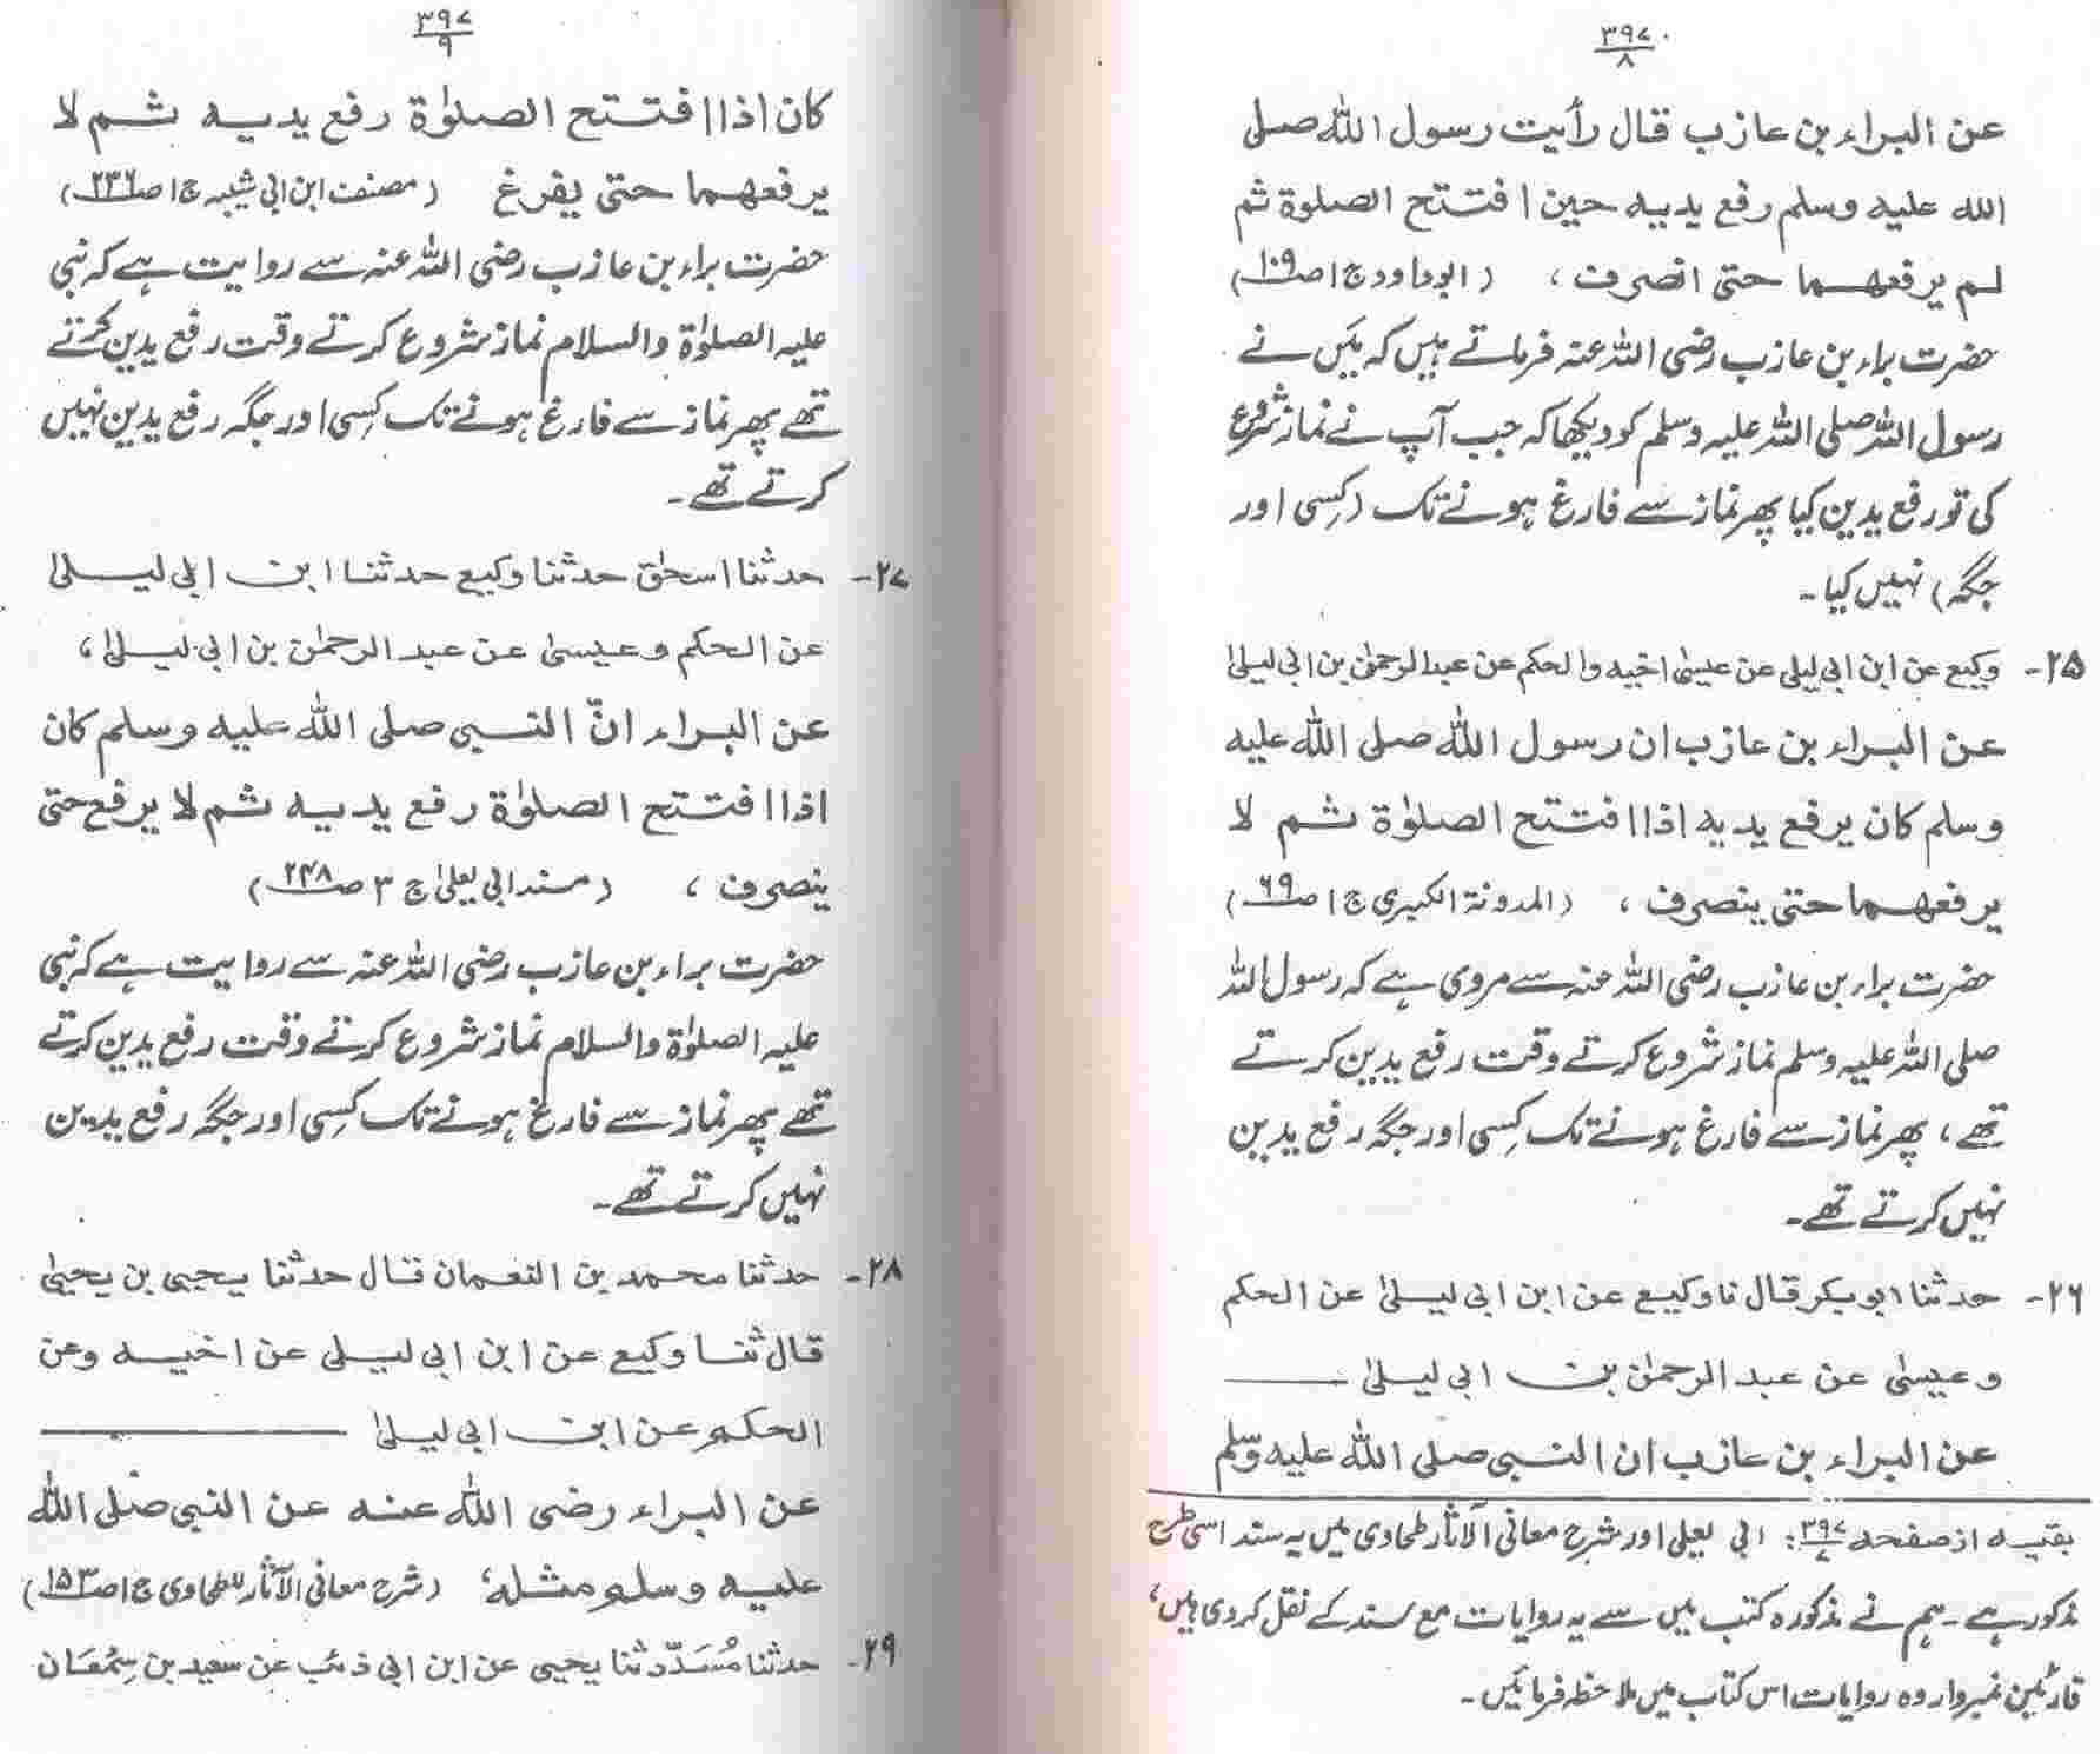 ۳۹۷
۸
عن البراء بن عازب قال رأيت رسول الله صلى
الله عليه وسلم رفع يديه حين افتتح الصلوة ثم
لم يرفعهما حتى انصرف ، (ابوداود ج ۱ ص۱۰۹)
حضرت براء بن عازب رضی اللہ عنہ فرماتے ہیں کہ میَں نے
رسول اللہ صلی اللہ علیہ وسلم کو دیکھا کہ جب آپ نے نماز شروع
کی تو رفع یدین کیا پھر نماز سے فارغ ہونے تک (کِسی اور
جگہ) نہیں کیا۔
۲۵- وكيع عن ابن ابي ليلى عن عيسىٰ اخيه والحكم عن عبد الرحمٰن بن ابي ليلىٰ
عن البراء بن عازب ان رسول الله صلى الله عليه
وسلم كان يرفع يديه اذا افتتح الصلوٰة ثم لا
يرفعهما حتى ينصرف ، (المدونة الكبرى ج ۱ ص۶۹)
حضرت براء بن عازب رضی اللہ عنہ سے مروی ہے کہ رسول اللہ
صلی اللہ علیہ وسلم نماز شروع کرتے وقت رفع یدین کرتے
تھے ، پھر نماز سے فارغ ہونے تک کِسی اور جگہ رفع یدین
نہیں کرتے تھے۔
۲۶- حدثنا ابو بكر قال نا وكيع عن ابن ابي ليلىٰ عن الحكم
وعيسىٰ عن عبد الرحمٰن بن ابي ليلىٰ
عن البراء بن عازب ان النبى صلى الله عليه وسلم
بقیہ از صفحہ ۳۹۷/۷: ابی یعلی اور شرح معانی الآثار طحاوی میں یہ سند اسی طرح
مذکور ہے۔ ہم نے مذکورہ کتب میں سے یہ روایات مع سند کے نقل کر دی ہیں،
قارئین نمبروار وہ روایات اس کتاب میں ملاحظہ فرمائیں۔
۳۹۷
۹
كان اذا افتتح الصلوٰة رفع يديه ثم لا
يرفعهما حتى يفرغ (مصنف ابن ابی شیبہ ج ۱ ص۲۳۶)
حضرت براء بن عازب رضی اللہ عنہ سے روایت ہے کہ نبی
علیہ الصلوٰۃ والسلام نماز شروع کرتے وقت رفع یدین کرتے
تھے پھر نماز سے فارغ ہونے تک کِسی اور جگہ رفع یدین نہیں
کرتے تھے۔
۲۷- حدثنا اسحٰق حدثنا وكيع حدثنا ابن ابي ليلىٰ
عن الحكم وعيسىٰ عن عبد الرحمٰن بن ابي ليلىٰ ،
عن البراء انّ النبى صلى الله عليه وسلم كان
اذا افتتح الصلوٰة رفع يديه ثم لا يرفع حتى
ينصرف ، (مسند ابی یعلیٰ ج ۳ ص۲۴۸)
حضرت براء بن عازب رضی اللہ عنہ سے روایت ہے کہ نبی
علیہ الصلوٰۃ والسلام نماز شروع کرتے وقت رفع یدین کرتے
تھے پھر نماز سے فارغ ہونے تک کِسی اور جگہ رفع یدین
نہیں کرتے تھے۔
۲۸- حدثنا محمد بن النعمان قال حدثنا يحيى بن يحيىٰ
قال ثنا وكيع عن ابن ابي ليلى عن اخيه وعن
الحكم عن ابن ابي ليلىٰ
عن البراء رضى الله عنه عن النبى صلى الله
عليه وسلم مثله، (شرح معانی الآثار للطحاوی ج ۱ ص۱۵۳)
۲۹- حدثنا مُسَدّد ثنا يحيى عن ابن ابي ذئب عن سعيد بن سِمْعَان